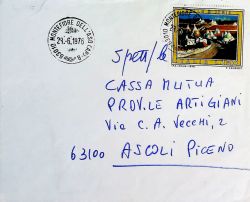 63010 MONTEFIORE DELL'ASO (AP)
24.-6.1976
Spett/le
CASSA MUTUA
PROV.LE ARTIGIANI
Via C.A. Vecchi, 2
63100 ASCOLI PICENO